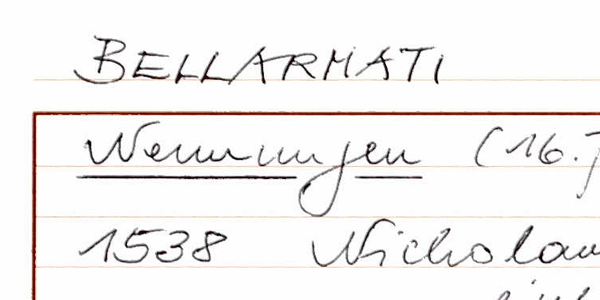 BELLARMATI
Nennungen (16.J
1538 Nicholau